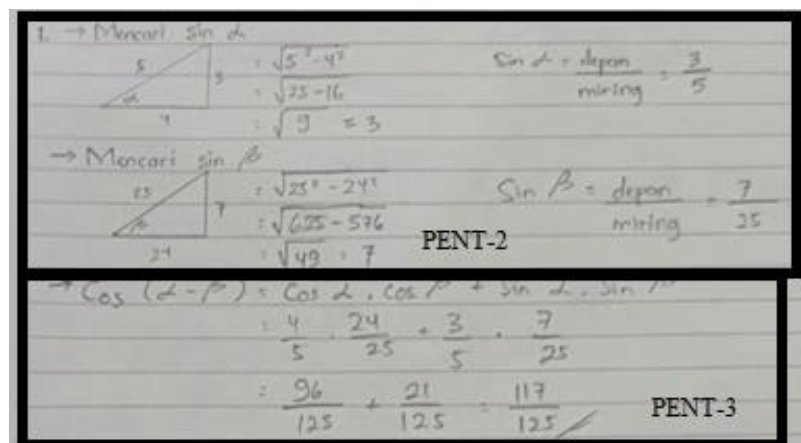 1. → Mencari sin α
5 3 α 4
= √5² - 4²
= √25 - 16
= √9 = 3
Sin α = depan/miring = 3/5
→ Mencari sin β
25 7 β 24
= √25² - 24²
= √625 - 576
= √49 = 7
Sin β = depan/miring = 7/25
PENT-2
→ Cos (α - β) = Cos α . cos β + sin α . sin β
= 4/5 . 24/25 + 3/5 . 7/25
= 96/125 + 21/125 = 117/125
PENT-3